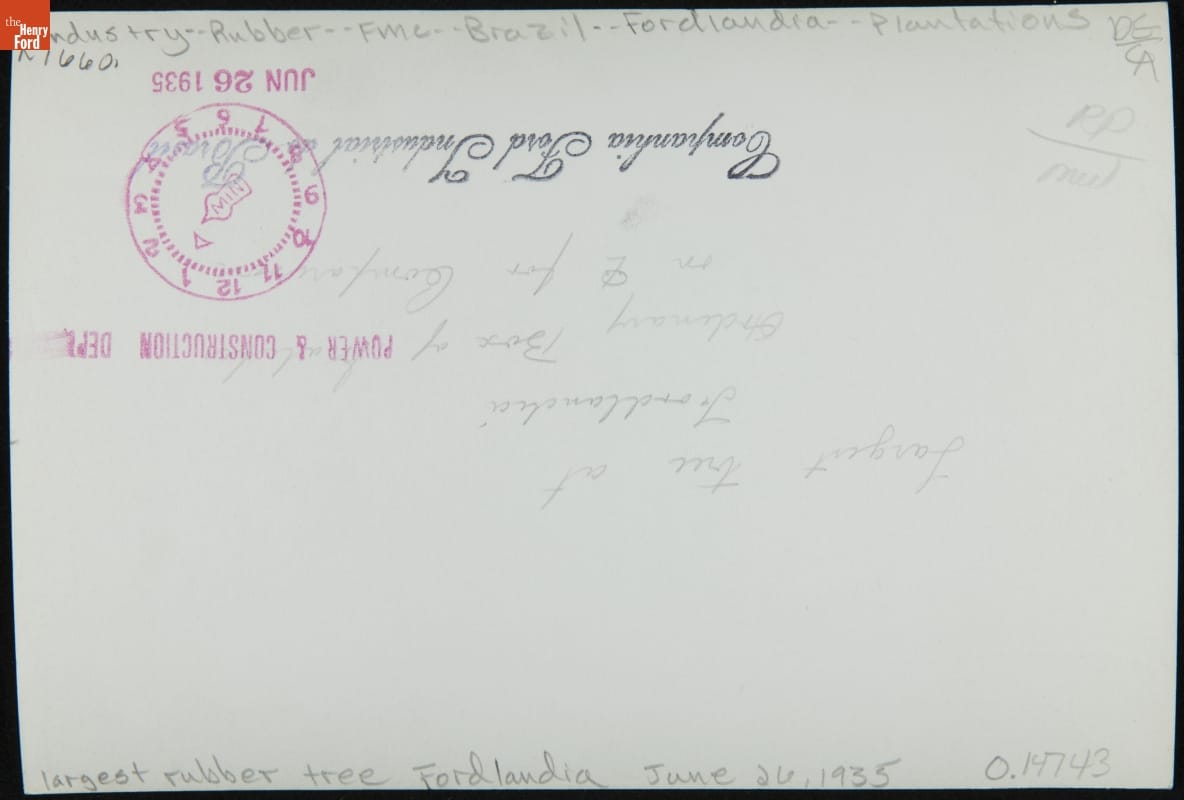 the
Henry
Ford
Industry--Rubber--FMC--Brazil--Fordlandia--Plantations
JUN 26 1935
6 7 8 9 10 11 12 1 2 3 4 5
MIN
Companhia Ford Industrial do Brasil
POWER & CONSTRUCTION DEPT.
Largest tree at
Fordlandia
Ordinary Box of
on for
largest rubber tree Fordlandia June 26, 1935 O.14743